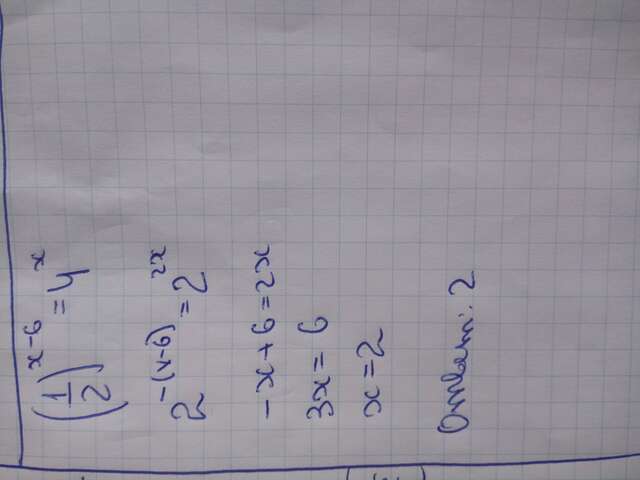 (1/2)^(x-6) = 4^x
2^(-(x-6)) = 2^(2x)
-x+6=2x
3x=6
x=2
Ответ: 2